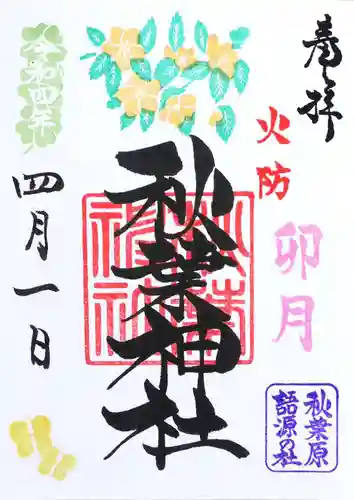 奉拝
火防
卯月
秋葉原
語源の社
秋葉神社
令和四年
四月一日